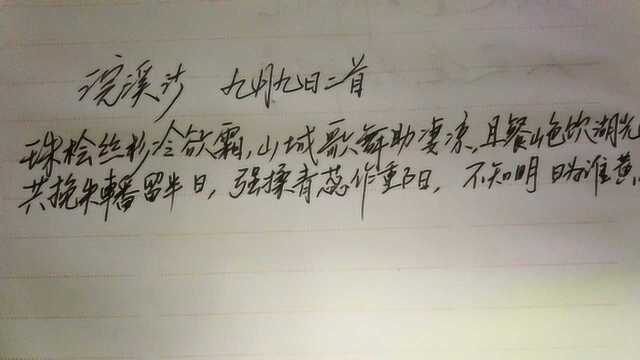 浣溪沙 九月九日二首
珠桧丝杉冷欲霜,山城歌舞助凄凉,且餐山色饮湖光
共挽朱轓留半日,强揉青蕊作重阳,不知明日为谁黄.